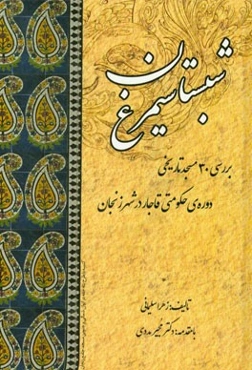 شبستان
سیمرغ
بررسی ۳۰ مسجد تاریخی
دوره‌ی حکومتی قاجار در شهر زنجان
تالیف: زهرا سلیمانی
با مقدمه: دکتر مجیر مددی